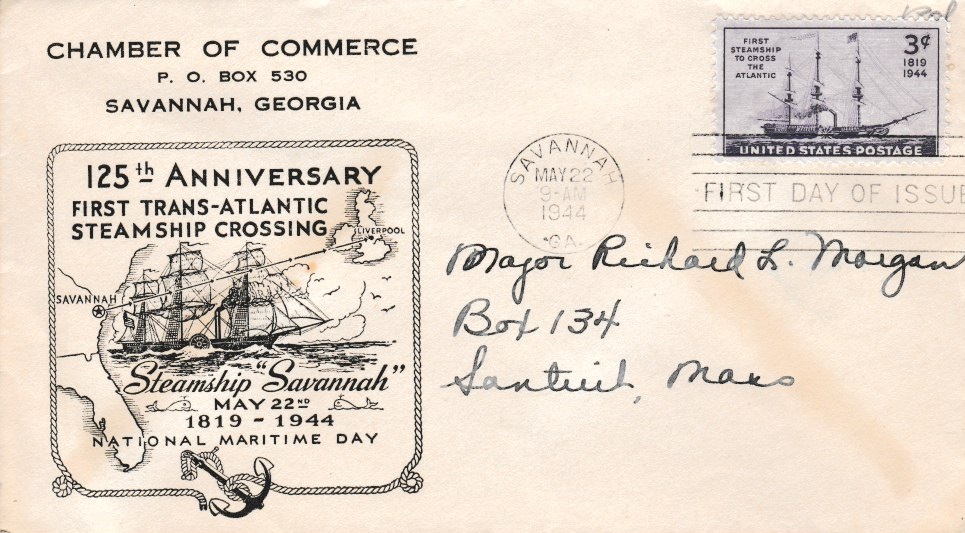 CHAMBER OF COMMERCE
P. O. BOX 530
SAVANNAH, GEORGIA
125th ANNIVERSARY
FIRST TRANS-ATLANTIC
STEAMSHIP CROSSING
LIVERPOOL
SAVANNAH
Steamship "Savannah"
MAY 22ND
1819 - 1944
NATIONAL MARITIME DAY
FIRST
STEAMSHIP
TO CROSS
THE
ATLANTIC
3¢
1819
1944
UNITED STATES POSTAGE
SAVANNAH
MAY 22
9-AM
1944
GA.
FIRST DAY OF ISSUE
Major Richard L. Morgan
Box 134
Santuit, Mass